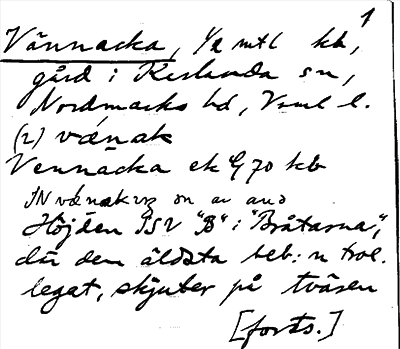 1
Vännacka, 1/2 mtl kb,
gård i Karlanda sn,
Nordmarks hd, Vrml l.
(2) vä́nak
Vennacka ek G 70 kb
IN vä́nak
Höjden SSV "B" i "Bråtarna",
där den äldsta beb:n trol.
legat, skjuter på tvären
[forts.]